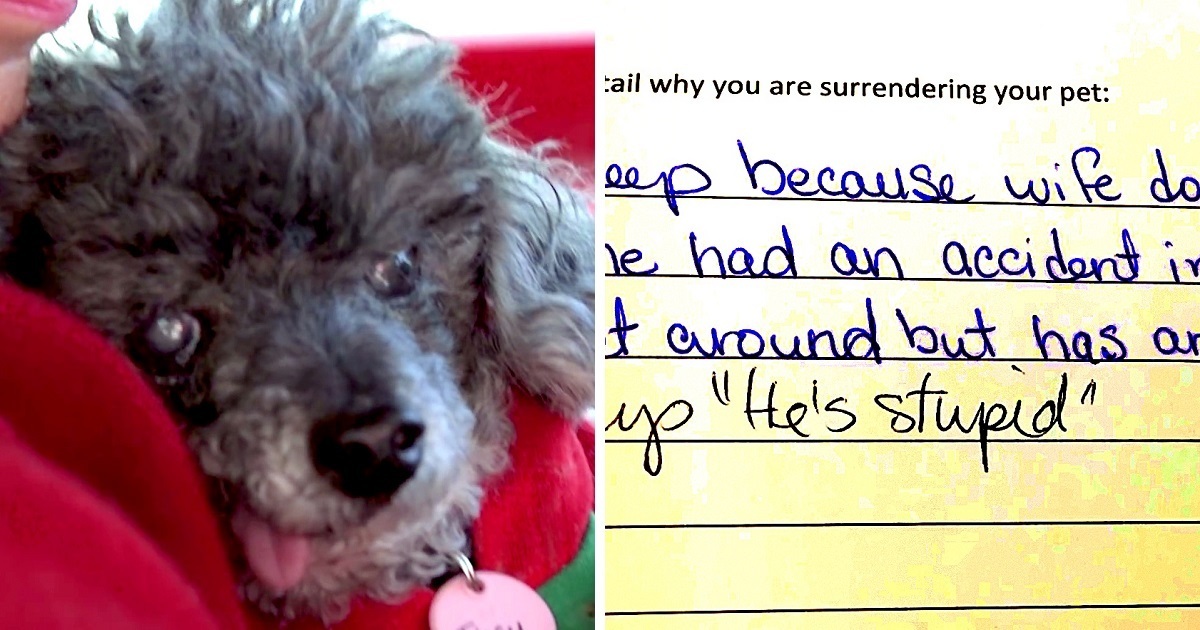 tail why you are surrendering your pet:
eep because wife do
he had an accident in
t around but has an
up "He's stupid"